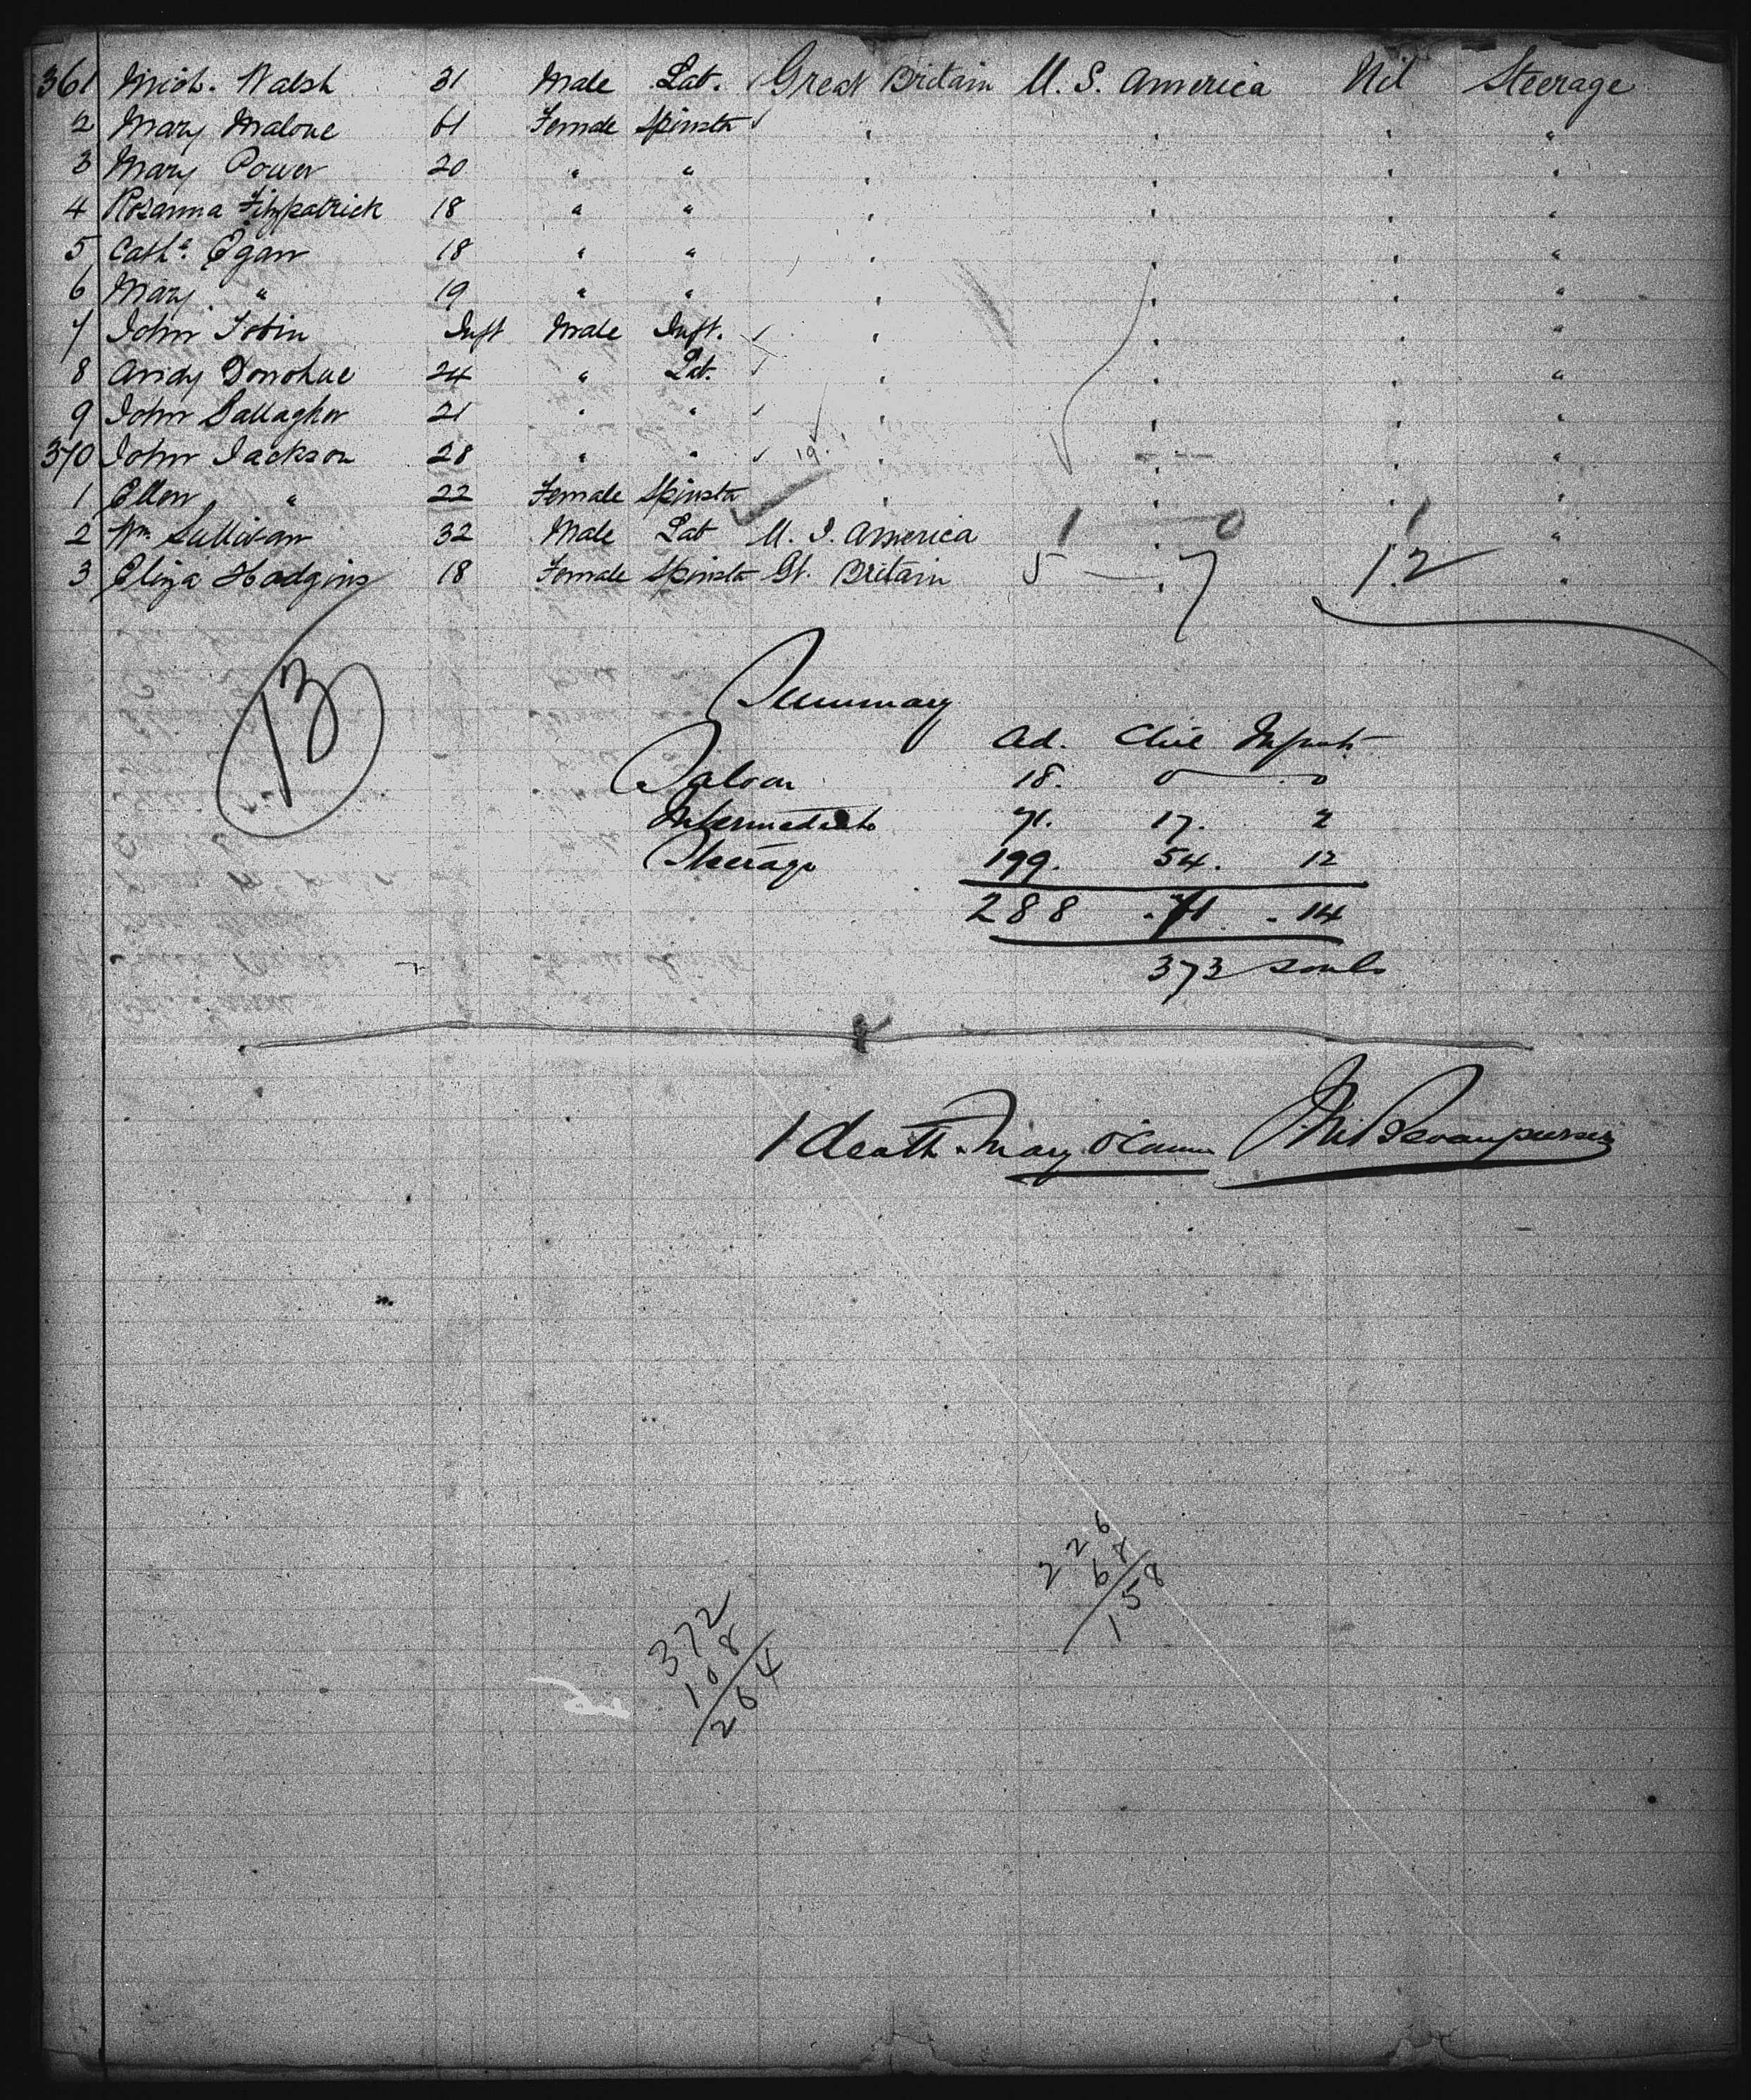 361 Mich. Walsh 31 Male Lab. Great Britain U. S. America Nil Steerage
2 Mary Malone 61 Female Spinstr " " " "
3 Mary Power 20 " " " " " "
4 Rosanna Fitzpatrick 18 " " " " " "
5 Cathe. Egan 18 " " " " " "
6 Mary " 19 " " " " " "
7 John Tobin Inft Male Inft. " " " "
8 Andy Donohue 24 " Lab. " " " "
9 John Gallagher 21 " " " " " "
370 John Jackson 28 " " " " " "
1 Ellen " 22 Female Spinstr " " " "
2 Wm. Sullivan 32 Male Lab U. S. America 1 0 1 "
3 Eliza Hodgins 18 Female Spinstr Gt. Britain 5 - 7 12 "
13
Summary
Ad. Chil Infants
Saloon 18. 0 0
Intermediate 71. 17. 2
Steerage 199. 54. 12
288 - 71 - 14
373 souls
1 death - Mary
226
68
158
372
108
264